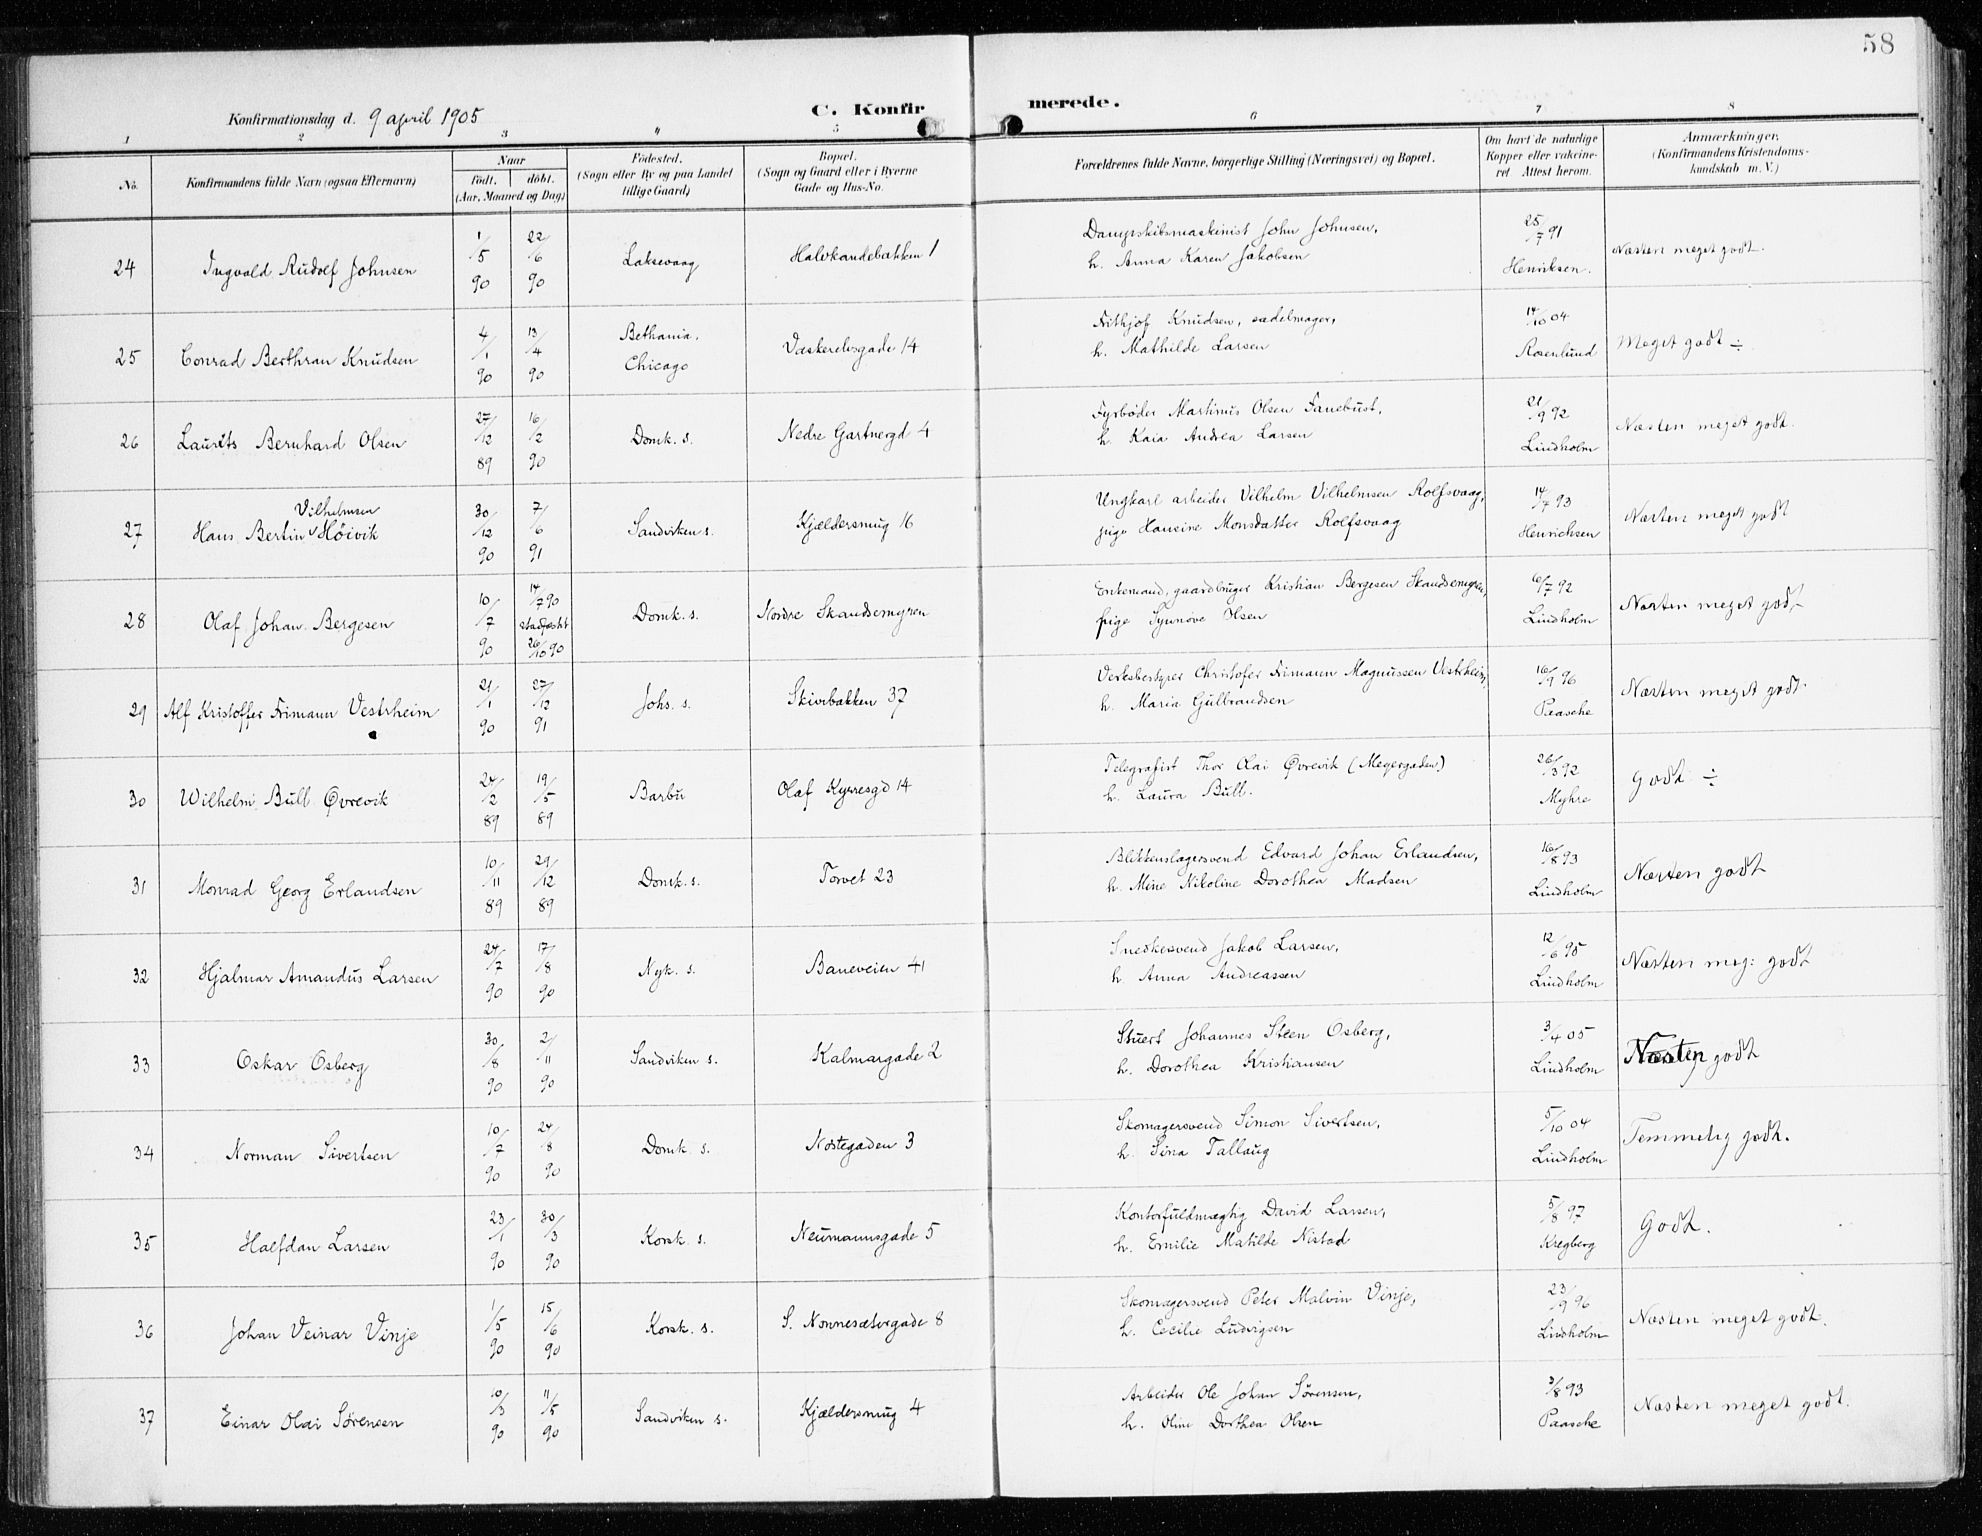 58
Konfirmationsdag d. 9 april 1905
C. Konfir
merede.
1 2 3 " 5 6 7 8
No.
Konfirmandens fulde Navn (ogsaa Efternavn)
Naar
født. døbt.
(Aar, Maaned og Dag)
Fødested.
(Sogn eller By og paa Landet
tillige Gaard)
Bopæl.
(Sogn og Gaard eller i Byerne
Gade og Hus-No.
Forældrenes fulde Navne, borgerlige Stilling (Næringsvei) og Bopæl.
Om havt de naturlige
Kopper eller vakcine-
ret Attest herom.
Anmærkninger.
(Konfirmandens Kristendoms-
kundskab m. V.)
24 Ingvald Rudolf Johnsen 1/5 90 22/6 90 Laksevaag Halvkandebakken 1
Dampskibsmaskinist John Johnsen,
h. Anna Karen Jakobsen
25/7 91
Henriksen.
Næsten meget godt.
25 Conrad Berthran Knudsen 4/1 90 13/4 90
Bethania,
Chicago
Vaskerelvsgade 14
Frithjof Knudsen, sadelmager,
h. Mathilde Larsen
14/10 04
Rosenlund
Meget godt ÷
26 Laurits Bernhard Olsen 27/12 89 16/2 90 Domk. s. Nedre Gartnergd 4
Fyrbøder Martinus Olsen Fanebust,
h. Kaia Andrea Larsen
21/9 92
Lindholm
Næsten meget godt.
Vilhelmsen
27 Hans Bertin ᵛ Høivik 30/12 90 7/6 91 Sandviken s. Kjældersmug 16
Ungkarl arbeider Vilhelm Vilhelmsen Rolfsvaag,
pige Hansine Monsdatter Rolfsvaag
14/7 93
Henrichsen
Næsten meget godt
28 Olaf Johan Bergesen 10/7 90 14/7 90
stadfæstet
26/10 90
Domk. s. Nordre Skandsemyren
Enkemand, gaardbruger Kristian Bergesen Skandsemyren,
pige Synnøve Olsen
6/7 92
Lindholm
Næsten meget godt
29 Alf Kristoffer Frimann Vestrheim 21/1 90 27/12 91 Johs. s. Skivebakken 37
Verksbestyrer Christofer Frimann Magnussen Vestrheim,
h. Maria Gulbrandsen
16/9 96
Paasche
Næsten meget godt.
30 Wilhelm Bull Øvrevik 24/2 89 19/5 89 Barbu Olaf Kyrresgd 14
Telegrafist Thor Olai Øvrevik (Meyergaden)
h. Laura Bull.
26/3 92
Myhre
Godt ÷
31 Monrad Georg Erlandsen 10/11 89 29/12 89 Domk. s. Torvet 23
Blikkenslagersvend Edvard Johan Erlandsen,
h. Mine Nikoline Dorothea Madsen
16/8 93
Lindholm
Næsten godt
32 Hjalmar Amandus Larsen 24/7 90 17/8 90 Nyk. s. Baneveien 41
Snedkersvend Jakob Larsen,
h. Anna Andreassen
12/6 95
Lindholm
Næsten meg: godt
33 Oskar Osberg 30/8 90 2/11 90 Sandviken s. Kalmargade 2
Stuert Johannes Steen Osberg,
h. Dorothea Kristiansen
3/4 05
Lindholm
Næsten godt
34 Norman Sivertsen 10/7 90 24/8 90 Domk. s. Nøstegaden 3
Skomagersvend Simon Sivertsen,
h. Sina Tallaug
5/10 04
Lindholm
Temmelig godt.
35 Halfdan Larsen 23/1 90 30/3 90 Korsk. s. Neumannsgade 5
Kontorfuldmægtig David Larsen,
h. Emilie Matilde Nistad
5/8 97
Kregberg
Godt.
36 Johan Veinar Vinje 1/5 90 15/6 90 Korsk. s. S. Nonnesætergade 8
Skomagersvend Peter Malvin Vinje,
h. Cecilie Ludvigsen
23/9 96
Lindholm
Næsten meget godt.
37 Einar Olai Sørensen 10/3 90 11/5 90 Sandviken s. Kjældersmug 4
Arbeider Ole Johan Sørensen,
h. Oline Dorthea Olsen
3/8 93
Paasche
Næsten meget godt.